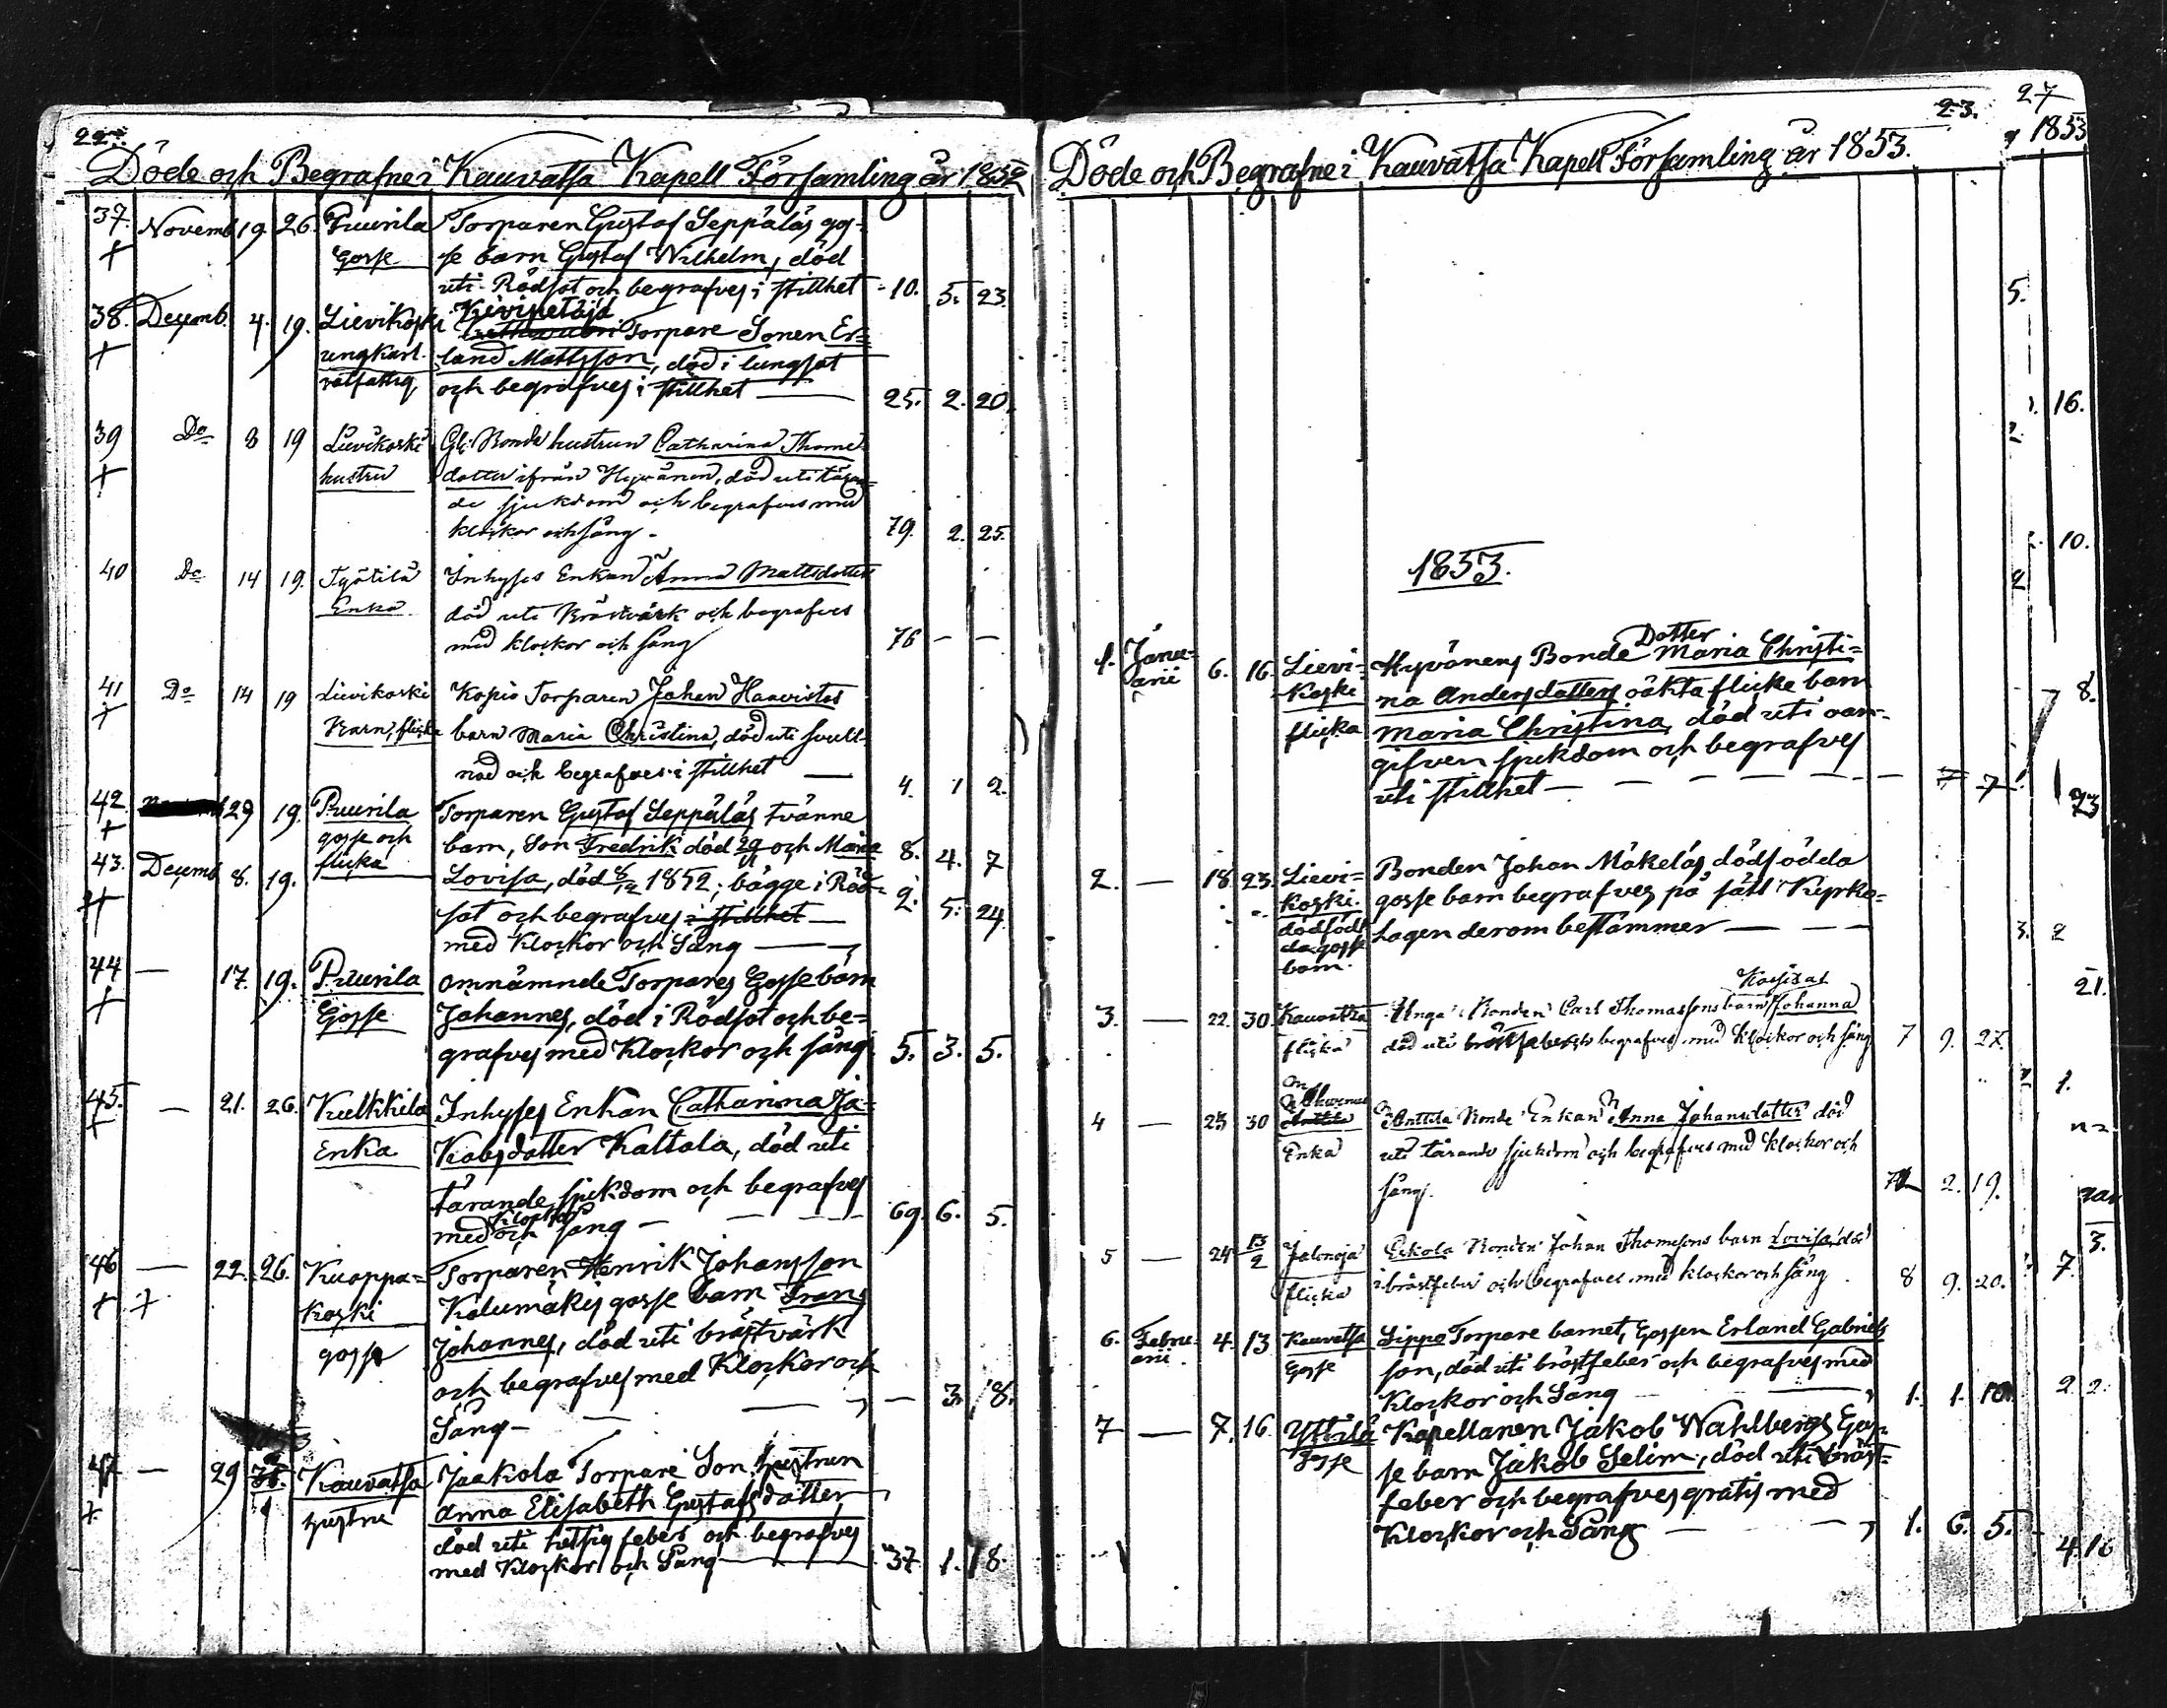 22.
Döde och Begrafne i Kauvatsa Kapell Församling år 1852
37. Novemb. 19. 26. Puurila Torparen Gustaf Seppäläs gos-
+ Gosse se barn Gustaf Wilhelm, död
uti Rödsot och begrafves i stillhet 10. 5. 23.
38. Decemb. 4. 19. Lievikoski Torpare Sonen Er=
+ ungkarl land Mattsson, död i lungsot
och begrafves i stillhet 25. 2. 20.
39 Do 8 19 Lievikoski Bonde hustrun Catharina Thome
+ hustru dotter ifrån Hyvänen, död uti täran=
de sjukdom och begrafves med
klockor och sång. 79. 2. 25.
40 Do 14 19. Työtilä Inhyses Enkan Anna Mattsdotter
Enka död uti Bröstvärk och begrafves
med klockor och sång 76 — —
41 Do 14 19 Lievikoski Kopio Torparen Johan Haavistos
+ Barn, flicka barn Maria Christina, död uti svull-
nad och begrafves i stillhet — 4. 1 2.
42. 29 19. Puurila Torparen Gustaf Seppäläs tvänne
+ gosse och barn, Son Fredrik död och Maria 8. 4. 7
43. Decemb 8. 19. flicka Lovisa, död 8/12 1852; bägge i Röd= 2. 5. 24.
sot och begrafves i stillhet —
med Klockor och Sång —
44 — 17. 19. Puurila omnämnde Torpares Gosse barn
+ Gosse Johannes, död i Rödsot och be=
grafves med Klockor och sång. 5. 3. 5.
45. — 21. 26. Kulkkila Inhyses Enkan Catharina Ja=
+ Enka kobsdotter Kattala, död uti
tärande sjukdom och begrafves
med Klockor och sång — 69. 6. 5.
46 — 22. 26. Kuoppa= Torparen Henrik Johansson
+ + koski Kalumäkes gosse barn Frans
gosse Johannes, död uti bröstvärk
och begrafves med Klockor och
Sång — — 3. 18.
47 — 29 Kauvatsa Jaakola Torpare Son hustrun
+ hustru Anna Elisabeth Gustafsdotter,
död uti hettsig feber och begrafves
med Klockor och Sång — 37. 1. 18.
23.
27
1853
Döde och Begrafne i Kauvatsa Kapell Församling år 1853.
1853.
Dotter
1. Janu= 6. 16. Lievi= Hyvänens Bonde Maria Christi=
arii koski na Andersdotters oäkta flicke barn
flicka Maria Christina, död uti oan=
gifven sjukdom och begrafves
uti stillhet — — — 7
2. — 18. 23. Lievi= Bonden Johan Mäkeläs dödfödda
koski. gosse barn begrafves på sätt Kyrko=
dödföd Lagen derom bestämmer — —
da gosse
barn.
3. — 22. 30. Kauvatsa Unga Bonden Carl Thomassons barn Johanna
flicka död uti bröstfeber och begrafves med klockor och sång 7 9. 27.
4 — 23 30 Anttila Bonde Enkan Anna Johansdotter död
Enka uti tärande sjukdom och begrafves med klockor och
sång. 2. 19.
5 — 24 13/2 Jalonoja Eskola Bonden Johan Thomssons barn Lovisa, död
flicka i bröstfeber och begrafves med klockor och sång 8 9. 20.
6. Febru= 4. 13 Kauvatsa Sippo Torpare barnet, Gossen Erland Gabriels
arii. Gosse son, död uti bröstfeber och begrafves med
Klockor och Sång — 1. 1. 10.
7 — 7. 16 Yttilä Kapellanen Jakob Wahlbergs Gos=
Gosse se barn Jakob Selim, död uti bröst=
feber och begrafves gratis med
Klockor och Sång — 1. 6. 5.